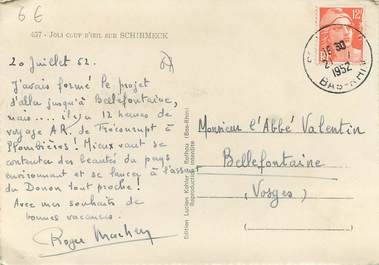 6 €
457 - JOLI COUP D'ŒIL SUR SCHIRMECK
20 Juillet 52.
J'avais formé le projet
d'aller jusqu'à Bellefontaine,
mais.... il y a 12 heures de
voyage A.R. de Fréconrupt à
Plombières ! Mieux vaut se
contenter des beautés du pays
environnant et se lancer à l'assaut
du Donon tout proche !
Avec mes souhaits de
bonnes vacances.
Roger
Edition Lucien Kohler Rothau (Bas-Rhin)
Reproduction interdite
12F
1952
BAS-RHIN
Monsieur l'Abbé Valentin
Bellefontaine
(Vosges)